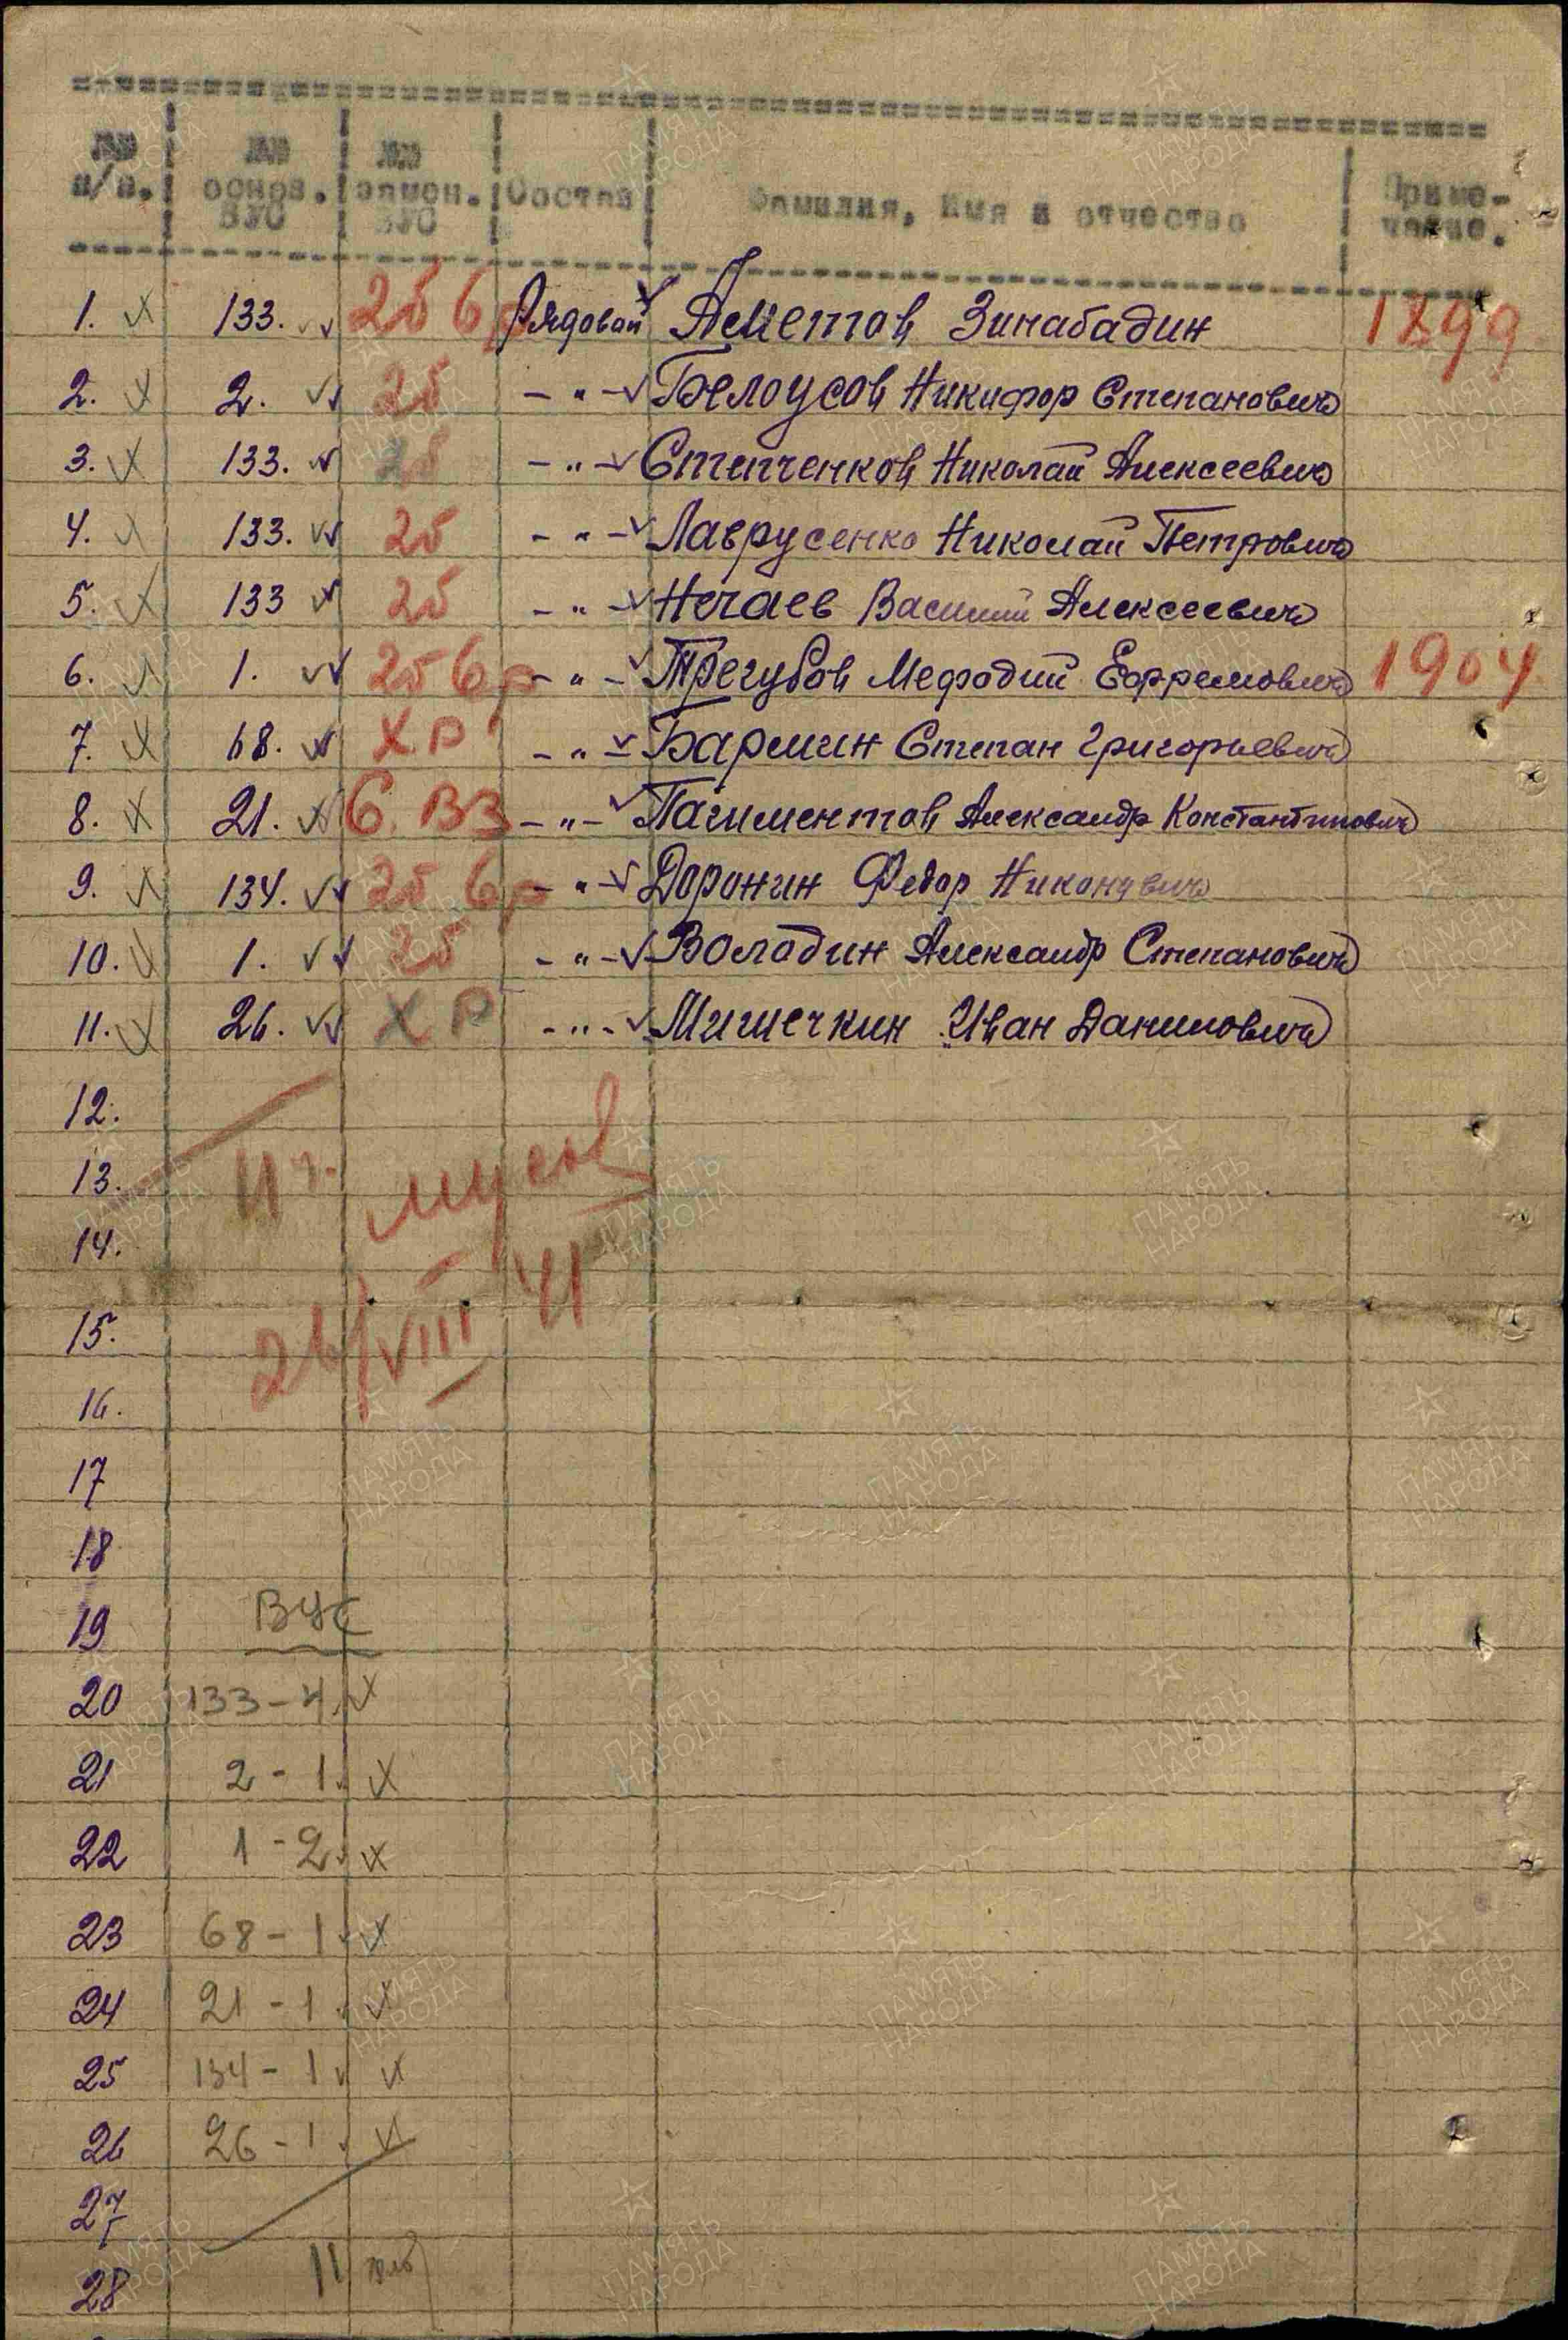 №№ п/п. №№ основ. ВУС №№ замен. ВУС Состав Фамилия, имя и отчество Приме-чание.
1. 133. 2б бр Рядовой Асметов Зинабадин 1899
2. 2. 2б -"- Белоусов Никифор Степанович
3. 133. 2б -"- Степченков Николай Алексеевич
4. 133. 2б -"- Лаврусенко Николай Петрович
5. 133 2б -"- Нечаев Василий Алексеевич
6. 1. 2б бр -"- Трегубов Мефодий Ефремович 1904
7. 68. ХР -"- Бармин Степан Григорьевич
8. 21. С. ВЗ -"- Александр Константинович
9. 134. 2б бр -"- Доронин Федор Никонович
10. 1. 2б -"- Володин Александр Степанович
11. 26. ХР -"- Мишечкин Иван Данилович
12.
13. 11 ч.
14.
26/VIII 41
15.
16.
17
18
19 ВУС
20 133-4
21 2-1
22 1-2
23 68-1
24 21-1
25 134-1
26 26-1
27
28 11
ПАМЯТЬ НАРОДА